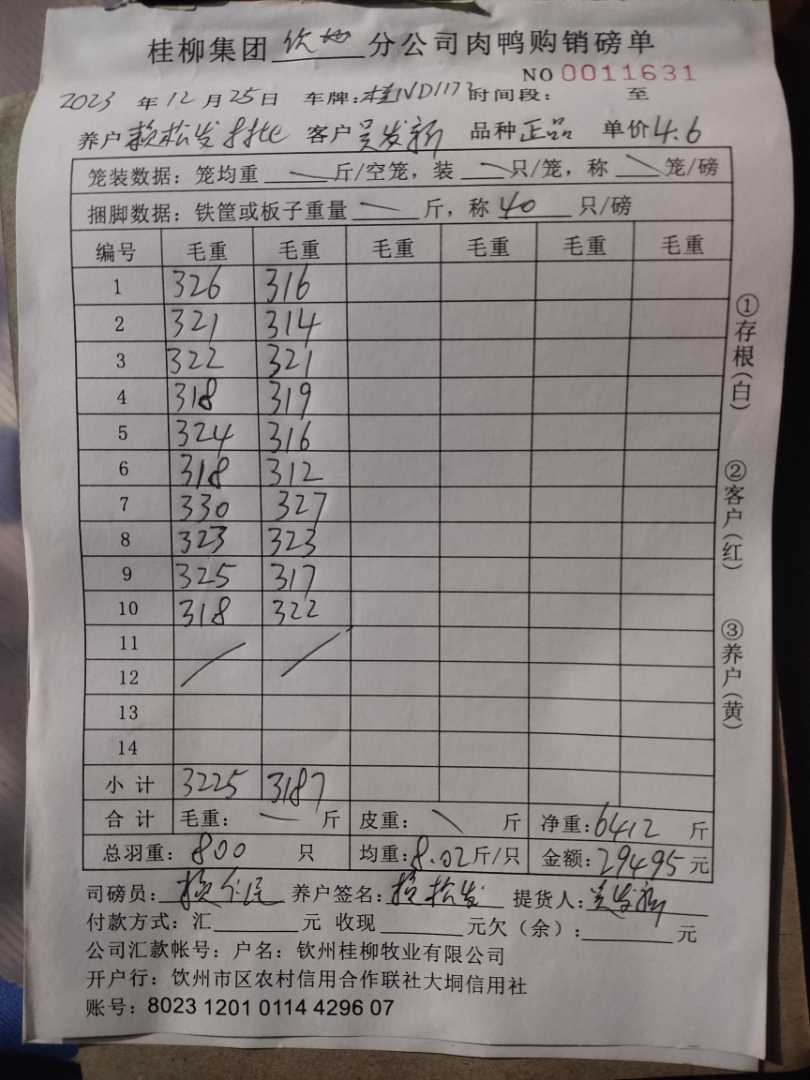 桂柳集团钦州分公司肉鸭购销磅单
NO 0011631
2023年12月25日 车牌:桂ND117 时间段: 至
养户 赖松发 客户 吴发新 品种 正品 单价 4.6
笼装数据: 笼均重 — 斤/空笼, 装 — 只/笼, 称 — 笼/磅
捆脚数据: 铁筐或板子重量 — 斤, 称 40 只/磅
编号 毛重 毛重 毛重 毛重 毛重 毛重
1 326 316
2 321 314
3 322 321
4 318 319
5 324 316
6 318 312
7 330 327
8 323 323
9 325 317
10 318 322
11
12
13
14
小计 3225 3187
合计 毛重: — 斤 皮重: \ 斤 净重: 6412 斤
总羽重: 800 只 均重: 8.02斤/只 金额: 29495元
司磅员: 养户签名: 赖松发 提货人: 吴发新
付款方式: 汇 元 收现 元欠(余): 元
公司汇款帐号: 户名: 钦州桂柳牧业有限公司
开户行: 钦州市区农村信用合作联社大垌信用社
账号: 8023 1201 0114 4296 07
①存根(白)
②客户(红)
③养户(黄)